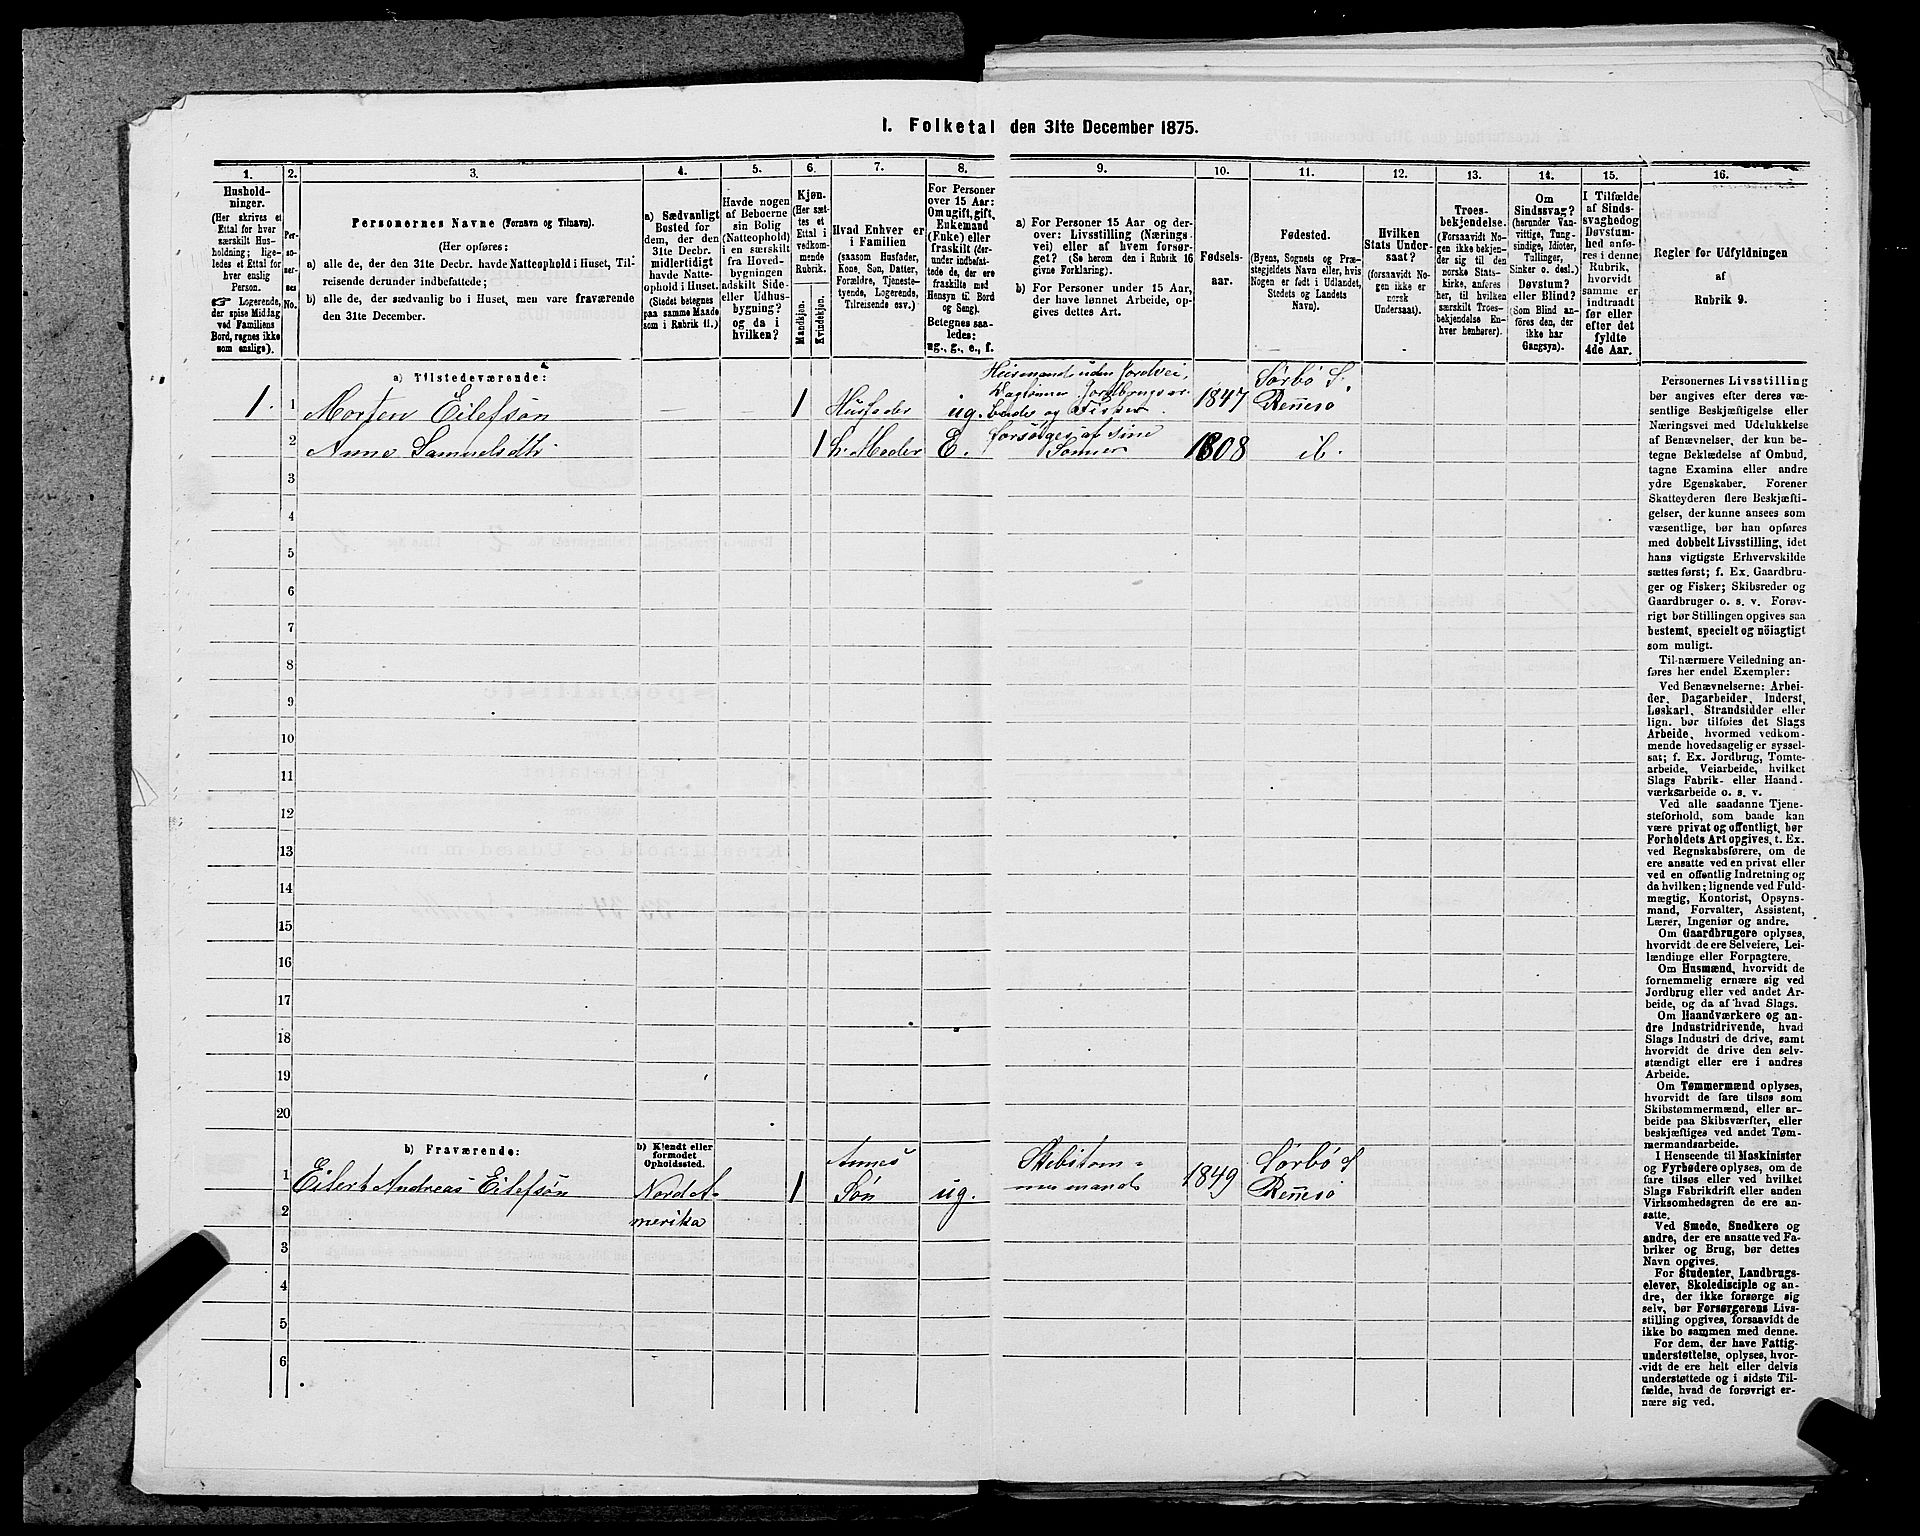 I. Folketal den 31te December 1875.
1.
2.
3.
4.
5.
6.
7.
8.
9.
10.
11.
12.
13.
14.
15.
16.
Hushold-
ninger.
(Her skrives et
Ettal for hver
særskilt Hus-
holdning; lige-
ledes et Ettal for
hver enslig
Person.
☞ Logerende,
der spise Middag
ved Familiens
Bord, regnes ikke
som enslige).
Per-
so-
ner-
nes
No.
Personernes Navne (Fornavn og Tilnavn).
(Her opføres:
a) alle de, der den 31te Decbr. havde Natteophold i Huset, Til-
reisende derunder indbefattede;
b) alle de, der sædvanlig bo i Huset, men vare fraværende
den 31te December.
a) Sædvanligt
Bosted for
dem, der den
31te Decbr.
midlertidigt
havde Natte-
ophold i Huset.
(Stedet betegnes
paa samme Maade
som i Rubrik 11.)
Havde nogen
af Beboerne
sin Bolig
(Natteophold)
i en særskilt
fra Hoved-
bygningen
adskilt Side-
eller Udhus-
bygning?
og da i
hvilken?
Kjøn.
(Her sæt-
tes et
Ettal i
vedkom-
mende
Rubrik.
Mandkjøn.
Kvindekjøn.
Hvad Enhver er
i Familien
(saasom Husfader,
Kone, Søn, Datter,
Forældre, Tjeneste-
tyende, Logerende,
Tilreisende osv.)
For Personer
over 15 Aar:
Om ugift, gift,
Enkemand
(Enke) eller
fraskilt (der-
under indbefat-
tede de, der ere
fraskilte med
Hensyn til Bord
og Seng).
Betegnes saa-
ledes:
ug., g., e., f.
a) For Personer 15 Aar og der-
over: Livsstilling (Nærings-
vei) eller af hvem forsør-
get? (Se herom den i Rubrik 16
givne Forklaring).
b) For Personer under 15 Aar,
der have lønnet Arbeide, op-
gives dettes Art.
Fødsels-
aar.
Fødested.
(Byens, Sognets og Præ-
stegjeldets Navn eller, hvis
Nogen er født i Udlandet,
Stedets og Landets
Navn).
Hvilken
Stats Under-
saat?
(forsaavidt No-
gen ikke er
norsk
Undersaat).
Troes-
bekjendelse.
(Forsaavidt No-
gen ikke bekjen-
der sig til den
norske Stats-
kirke, anføres
her, til hvilken
særskilt Troes-
bekjendelse En-
hver henhører).
Om
Sindssvag?
(herunder Van-
vittige, Tung-
sindige, Idioter,
Tullinger,
Sinker o. desl.)
Døvstum?
eller Blind?
(Som Blind an-
føres den, der
ikke har
Gangsyn).
I Tilfælde
af Sinds-
svaghed og
Døvstum-
hed anfø-
res i denne
Rubrik,
hvorvidt
samme er
indtraadt
før eller
efter det
fyldte
4de Aar.
Regler for Udfyldningen
af
Rubrik 9.
a) Tilstedeværende:
1. 1 Morten Eilefsøn — — 1 Husfader ug. Huusmand uden Jordvei,
Daglønner Jordbrugsar-
beider og Fisker. 1847 Sørbø S.
Rennesø
2 Anne Samuelsdtr 1 h. Moder E. forsørges af sine
Sønner 1808 ib.
3
4
5
6
7
8
9
10
11
12
13
14
15
16
17
18
19
20
b) Fraværende:
b) Kjendt eller
formodet
Opholdssted.
1 Eilert Andreas Eilefsøn Nord A-
merika 1 Annes
Søn ug. Skibstøm-
mermand 1849 Sørbø S
Rennesø
2
3
4
5
6
Personernes Livsstilling
bør angives efter deres væ-
sentlige Beskjæftigelse eller
Næringsvei med Udelukkelse
af Benævnelser, der kun be-
tegne Beklædelse af Ombud,
tagne Examina eller andre
ydre Egenskaber. Forener
Skatteyderen flere Beskjæfti-
gelser, der kunne ansees som
væsentlige, bør han opføres
med dobbelt Livsstilling, idet
hans vigtigste Erhvervskilde
sættes først; f. Ex. Gaardbru-
ger og Fisker; Skibsreder og
Gaardbruger o. s. v. Forøv-
rigt bør Stillingen opgives saa
bestemt, specielt og nöiagtigt
som muligt.
Til nærmere Veiledning an-
føres her endel Exempler:
Ved Benævnelserne: Arbei-
der, Dagarbeider, Inderst,
Løskarl, Strandsidder eller
lign. bør tilføies det Slags
Arbeide, hvormed vedkom-
mende hovedsagelig er syssel-
sat; f. Ex. Jordbrug, Tomte-
arbeide, Veiarbeide, hvilket
Slags Fabrik- eller Haand-
værksarbeide o. s. v.
Ved alle saadanne Tjene-
steforhold, som baade kan
være privat og offentligt, bør
Forholdets Art opgives, t. Ex.
ved Regnskabsførere, om de
ere ansatte ved en privat eller
ved en offentlig Indretning og
da hvilken; lignende ved Fuld-
mægtig, Kontorist, Opsyns-
mand, Forvalter, Assistent,
Lærer, Ingeniør og andre.
Om Gaardbrugere oplyses,
hvorvidt de ere Selveiere, Lei-
lændinge eller Forpagtere.
Om Husmænd, hvorvidt de
fornemmelig ernære sig ved
Jordbrug eller ved andet Ar-
beide, og da af hvad Slags.
Om Haandværkere og an-
dre Industridrivende, hvad
Slags Industri de drive, samt
hvorvidt de drive den selv-
stændigt eller ere i andres
Arbeide.
Om Tømmermænd oplyses,
hvorvidt de fare tilsøs som
Skibstømmermænd, eller ar-
beide paa Skibsværfter, eller
beskjæftiges ved andet Tøm-
mermandsarbeide.
I Henseende til Maskinister
og Fyrbødere oplyses, om de
fare tilsøs eller ved hvilket
Slags Fabrikdrift eller anden
Virksomhedsgren de ere an-
satte.
Ved Smede, Snedkere og
andre, der ere ansatte ved Fa-
briker og Brug, bør dettes
Navn opgives.
For Studenter, Landbrugs-
elever, Skoledisciple og an-
dre, der ikke forsørge sig
selv, bør Forsørgerens Livs-
stilling opgives, forsaavidt de
ikke bo sammen med denne.
For dem, der have Fattig-
understøttelse, oplyses, hvor-
vidt de ere helt eller delvis
understøttede og i sidste Til-
fælde, hvad de forøvrigt er-
nære sig ved.